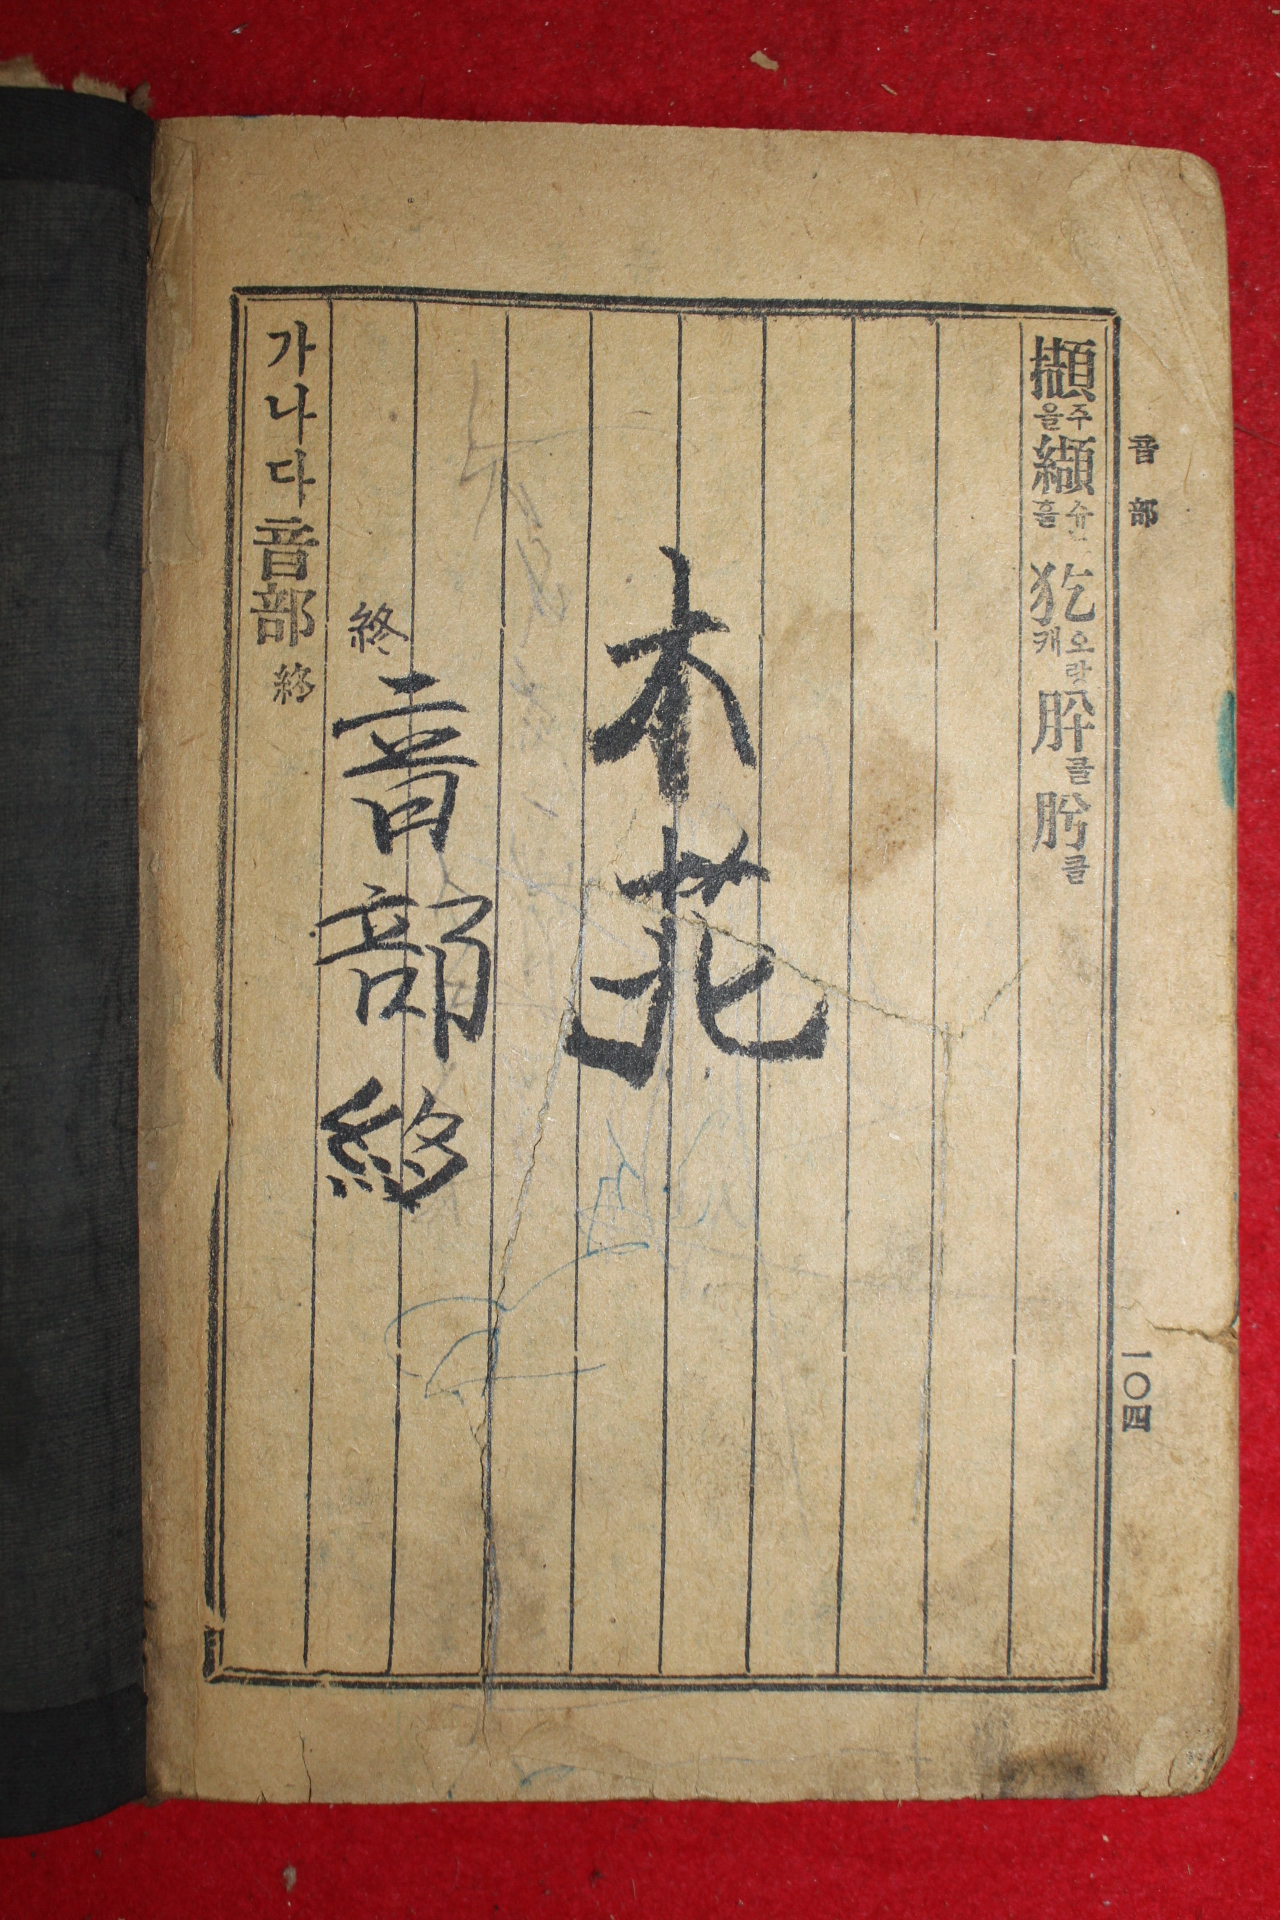 音部 一〇四
擷주을纈슌흘犵오랑캐肸클肹클
木花
終音部終
가나다音部終